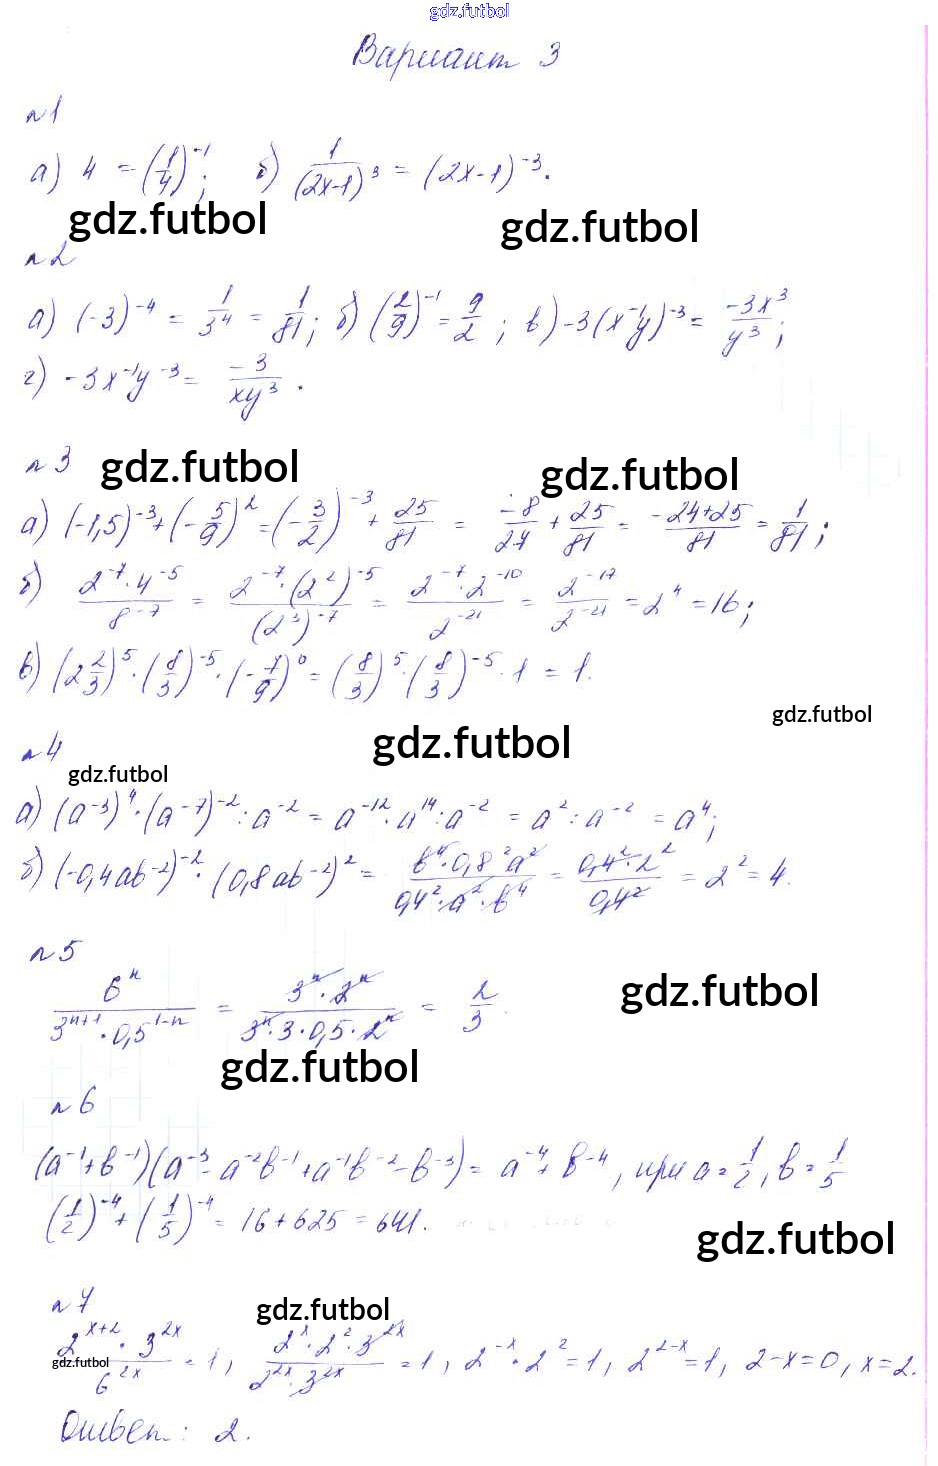 gdz.futbol
Вариант 3
n1
а) 4 = (1/4)^-1; б) 1/(2x-1)^3 = (2x-1)^-3.
gdz.futbol gdz.futbol
n2
а) (-3)^-4 = 1/3^4 = 1/81; б) (2/9)^-1 = 9/2; в) -3(x^-1y)^-3 = -3x^3/y^3;
г) -3x^-1y^-3 = -3/xy^3.
n3 gdz.futbol gdz.futbol
а) (-1,5)^-3 + (-5/9)^2 = (-3/2)^-3 + 25/81 = -8/27 + 25/81 = -24+25/81 = 1/81;
б) 2^-7·4^-5/8^-7 = 2^-7·(2^2)^-5/(2^3)^-7 = 2^-7·2^-10/2^-21 = 2^-17/2^-21 = 2^4 = 16;
в) (2 2/3)^5·(8/3)^-5·(-7/9)^0 = (8/3)^5·(8/3)^-5·1 = 1.
gdz.futbol
n4 gdz.futbol
gdz.futbol
а) (a^-3)^4·(a^-7)^-2:a^-2 = a^-12·a^14:a^-2 = a^2:a^-2 = a^4;
б) (-0,4ab^-2)^-2·(0,8ab^-2)^2 = b^4·0,8^2a^2/0,4^2·a^2·b^4 = 0,4^2·2^2/0,4^2 = 2^2 = 4.
n5
6^n/3^n+1·0,5^1-n = 3^n·2^n/3^n·3·0,5·2^n = 2/3.
gdz.futbol
gdz.futbol
n6
(a^-1+b^-1)(a^-3-a^-2b^-1+a^-1b^-2-b^-3) = a^-4+b^-4, при a=1/2, b=1/5
(1/2)^-4+(1/5)^-4 = 16+625 = 641.
gdz.futbol
n7 gdz.futbol
2^x+2·3^2x/6^2x = 1, 2^x·2^2·3^2x/2^2x·3^2x = 1, 2^-x·2^2 = 1, 2^2-x = 1, 2-x=0, x=2.
gdz.futbol
Ответ: 2.